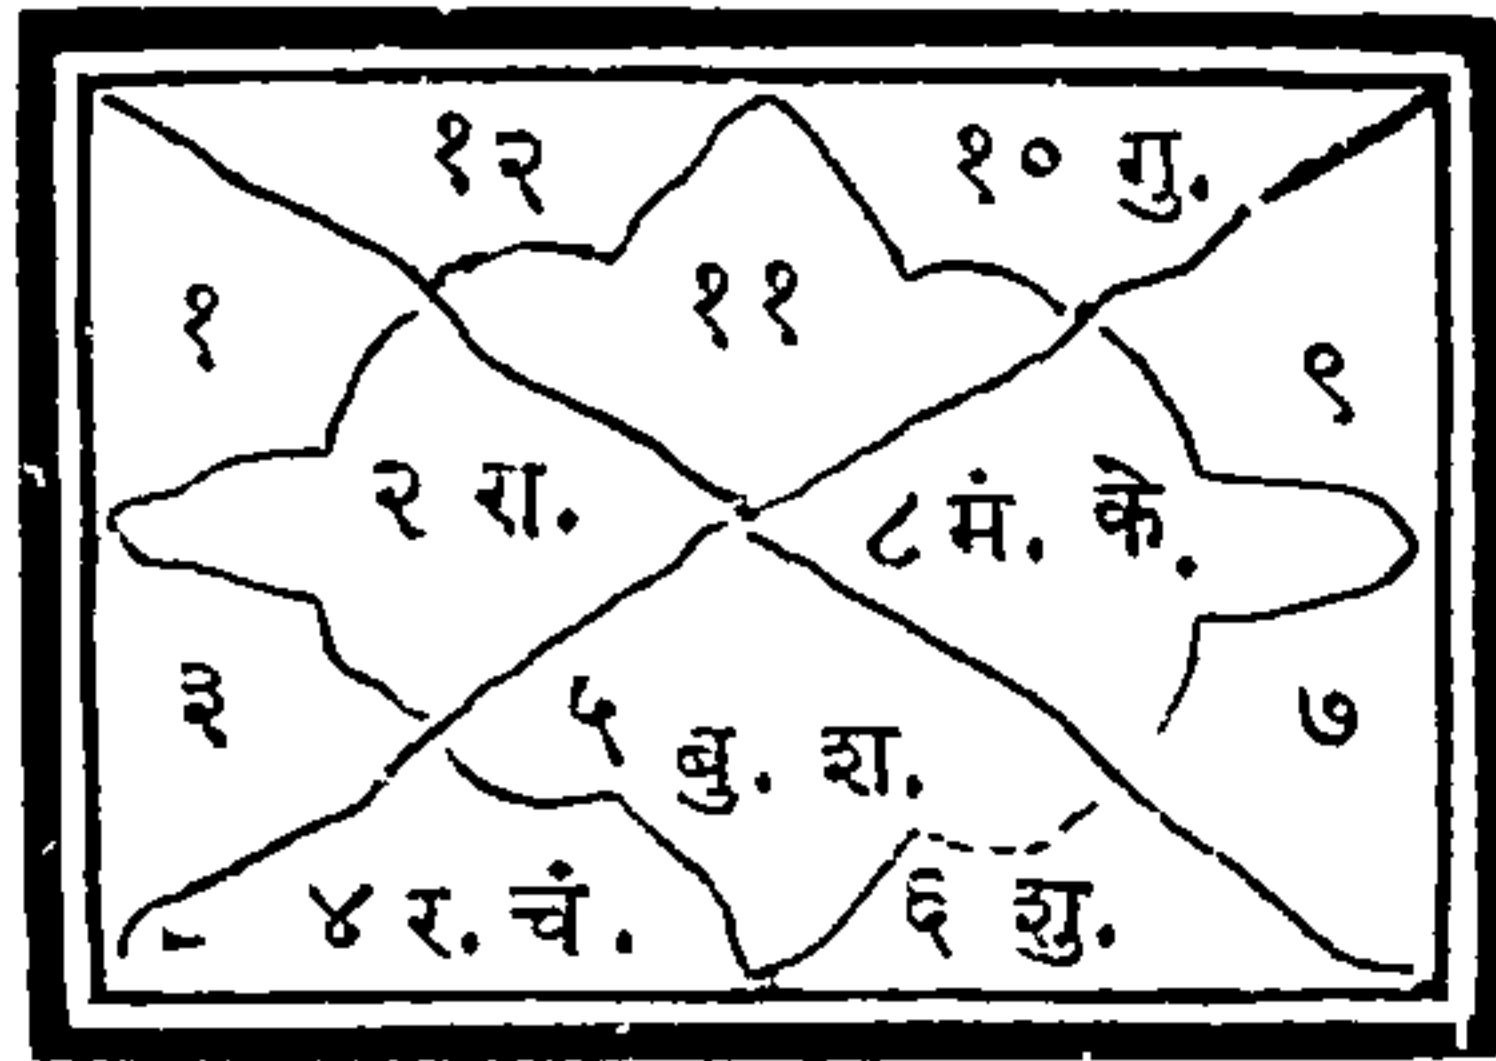 १२
१० गु.
१
११
९
२ रा.
८ मं. के.
३
५
बु. श.
७
४ र. चं.
६ शु.